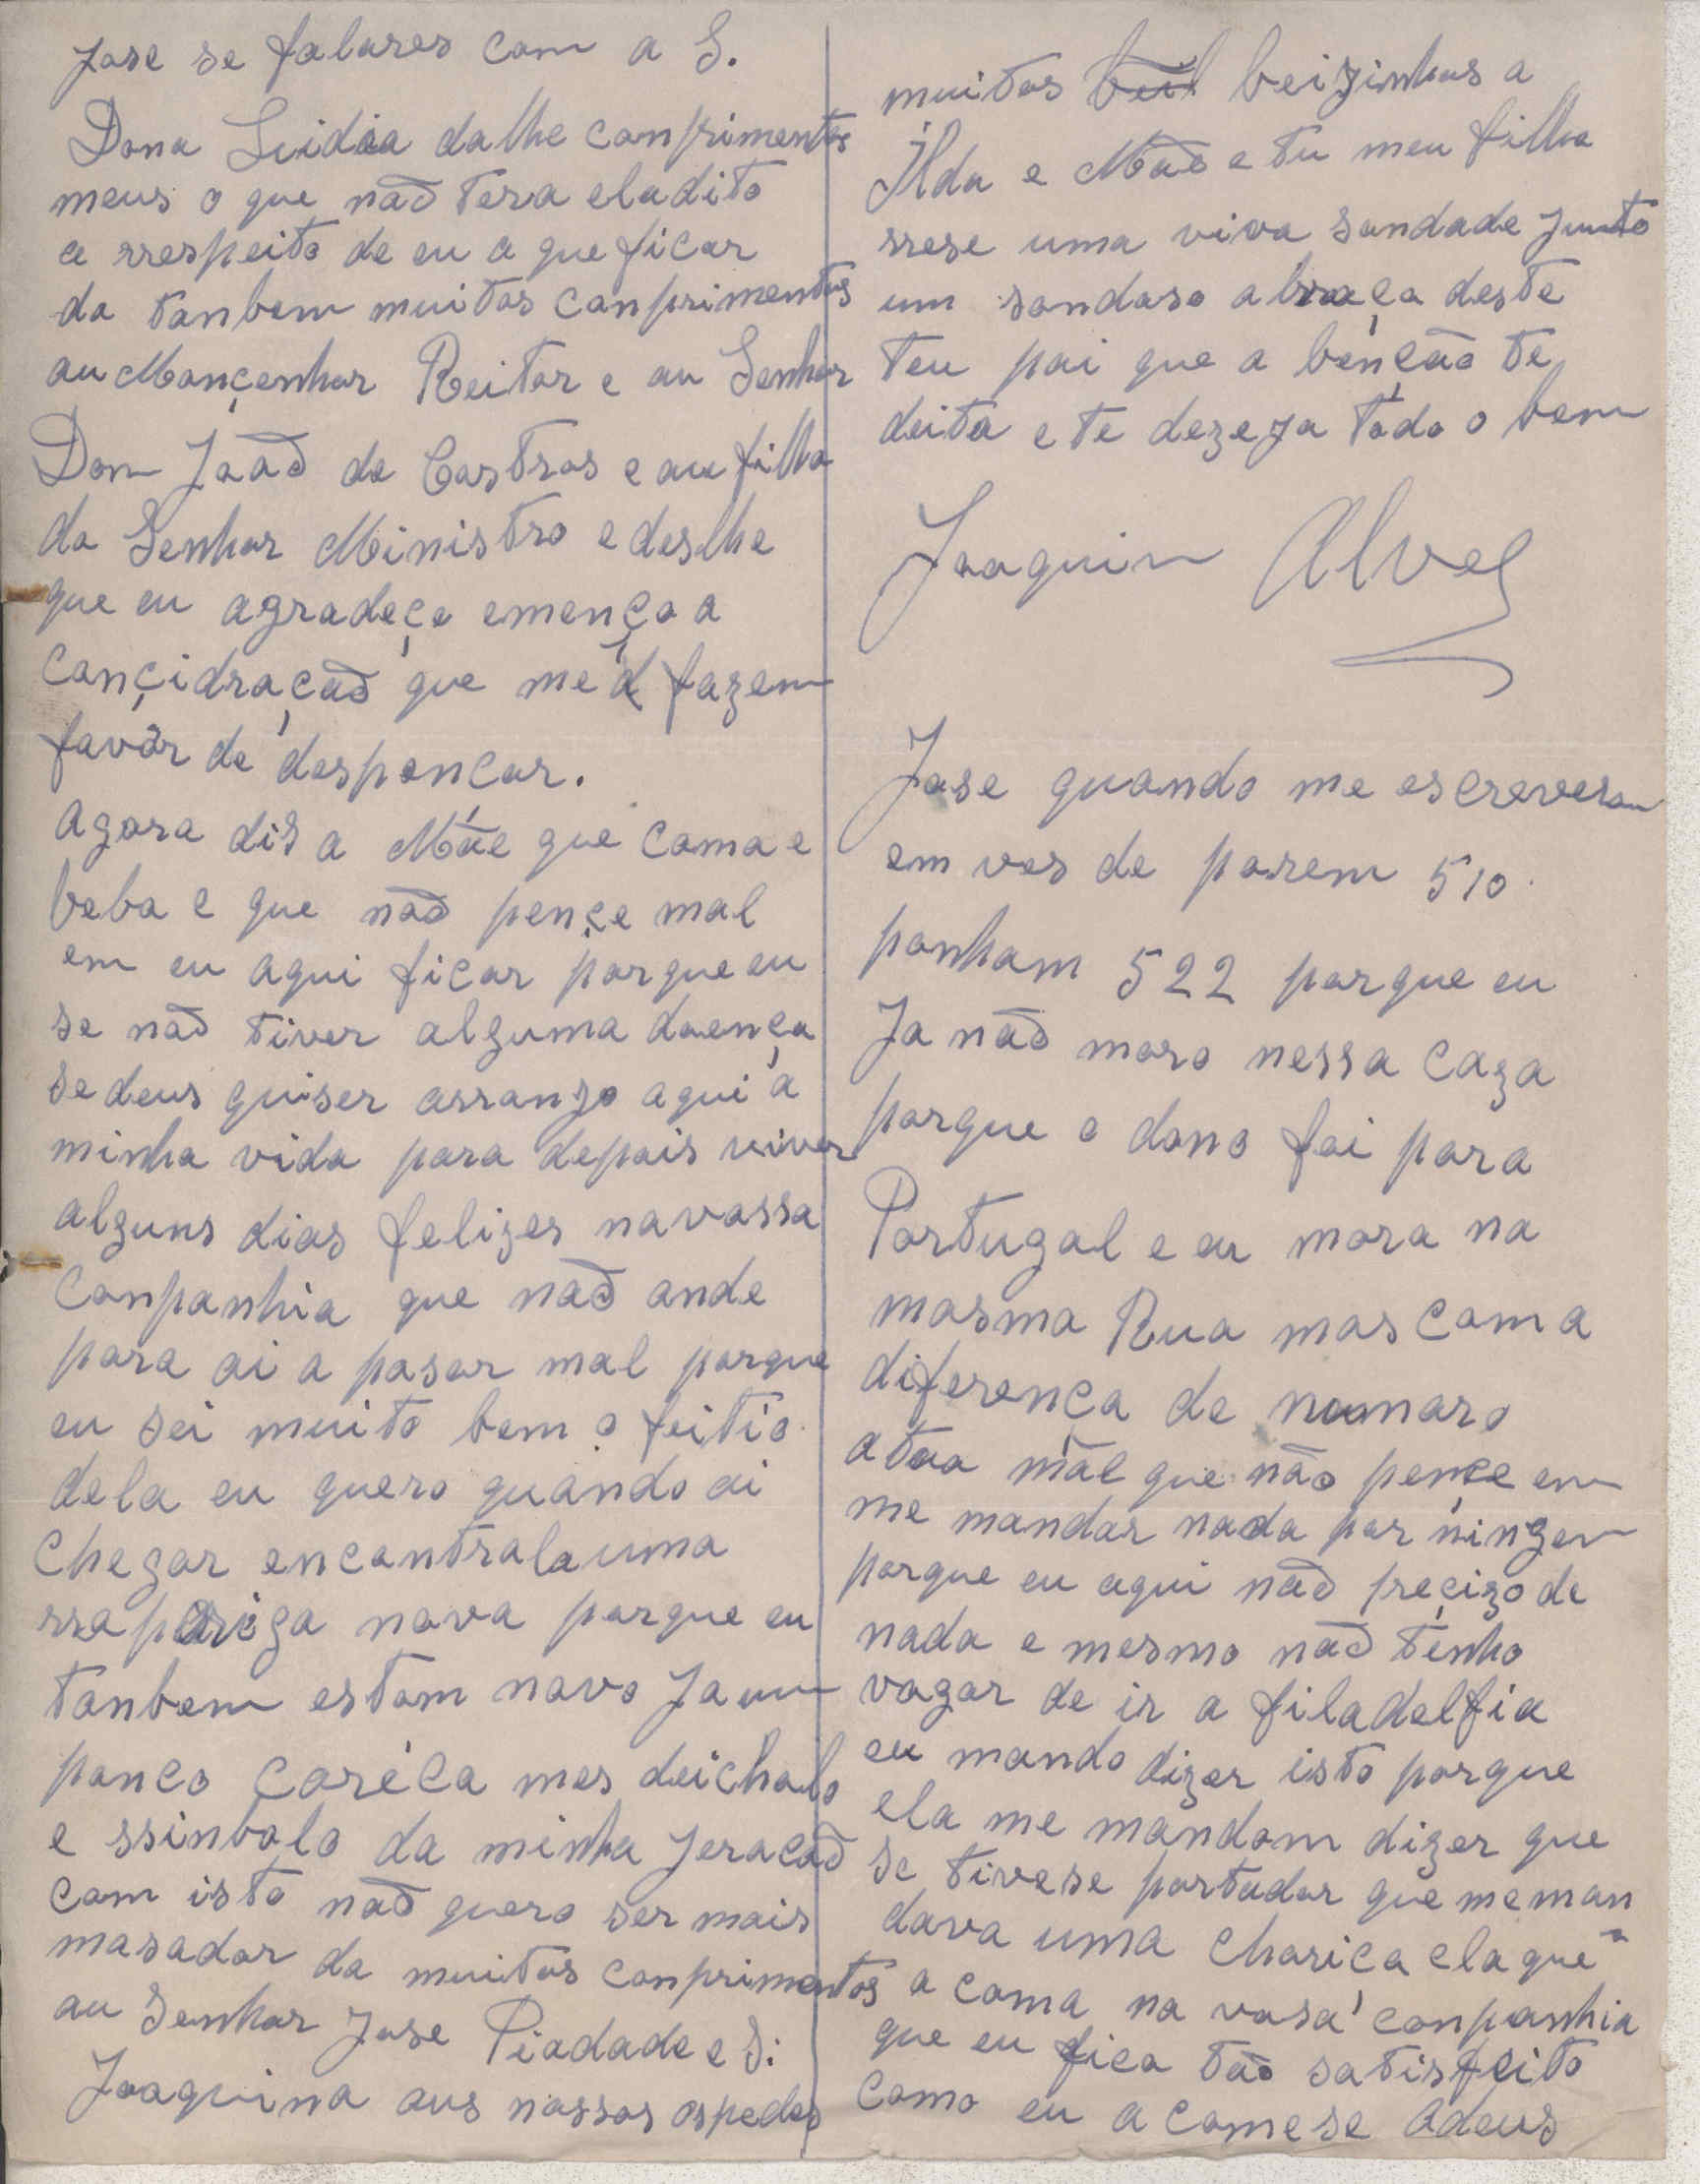 Jose se falares com a S.
Dona Luidia dalhe conprimentos
meus o que não tera eladito
a rrespeito de eu a que ficar
da tanbem muitos conprimentos
au Monçenhor Reitor e au Senhor
Dom João de Castros e au filho
do Senhor Ministro e deslhe
que eu agradeço emenço a
conçidração que me fazem
favôr de despencar.
Agora dis a Mãe que coma e
beba e que não pençe mal
em eu aqui ficar porque eu
se não tiver alguma doença
se deus quiser arranjo aqui a
minha vida para depois viver
alguns dias felizes navossa
Conpanhia que não ande
para ai a pasar mal porque
eu sei muito bem o feitio
dela eu quero quando ai
chegar encontrala uma
rrapariga nova porque eu
tanbem estom novo Ja um
pouco caréca mas deichalo
e ssinbolo da minha Jeracão
com isto não quero ser mais
masador da muitos conprimentos
au Senhor Jose Piadade e S:
Joaquina aus nossos ospedes
muitos beil beizinhos a
Ilda e Mãe e tu meu filho
rrese uma viva saudade Junto
um saudoso abraço deste
teu pai que a bençâo te
deita e te dezeja todo o bem
Joaquim Alves
Jose quando me escreveram
em ves de porem 510
ponham 522 porque eu
Ja não moro nessa Caza
porque o dono foi para
Portugal e eu moro na
mosma Rua mas com a
diferença de numaro
atão mãe que não pençe em
me mandar nada por ninguem
porque eu aqui não preçizo de
nada e mesmo não tenho
vagar de ir a filadelfia
eu mando dizer isto porque
ela me mandom dizer que
se tivese portador que meman
dava uma chariça ela que
a coma na vosa conpanhia
que eu fico tão satisfeito
Como eu a comese adeus